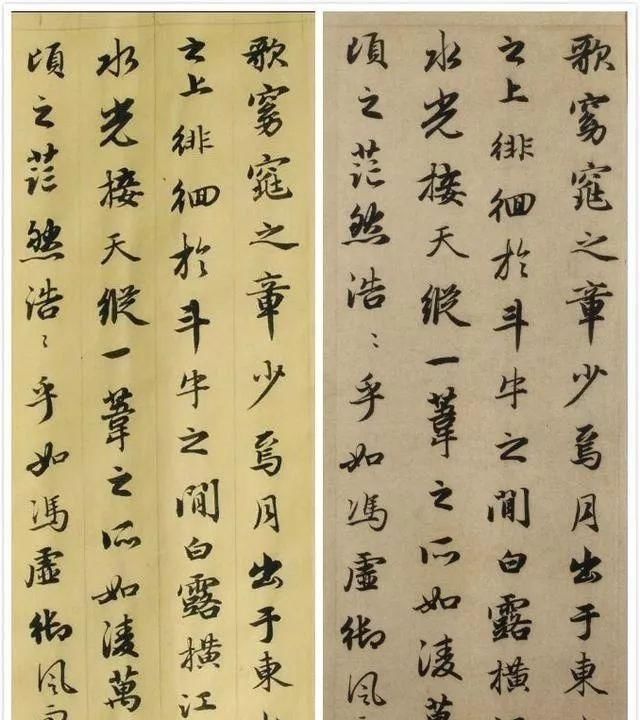 歌窈窕之章少焉月出于東
之上徘徊於斗牛之間白露橫江
水光接天縱一葦之所如凌萬
頃之茫然浩〻乎如馮虛御風
歌窈窕之章少焉月出于東
之上徘徊於斗牛之間白露橫
水光接天縱一葦之所如凌萬
頃之茫然浩〻乎如馮虛御風